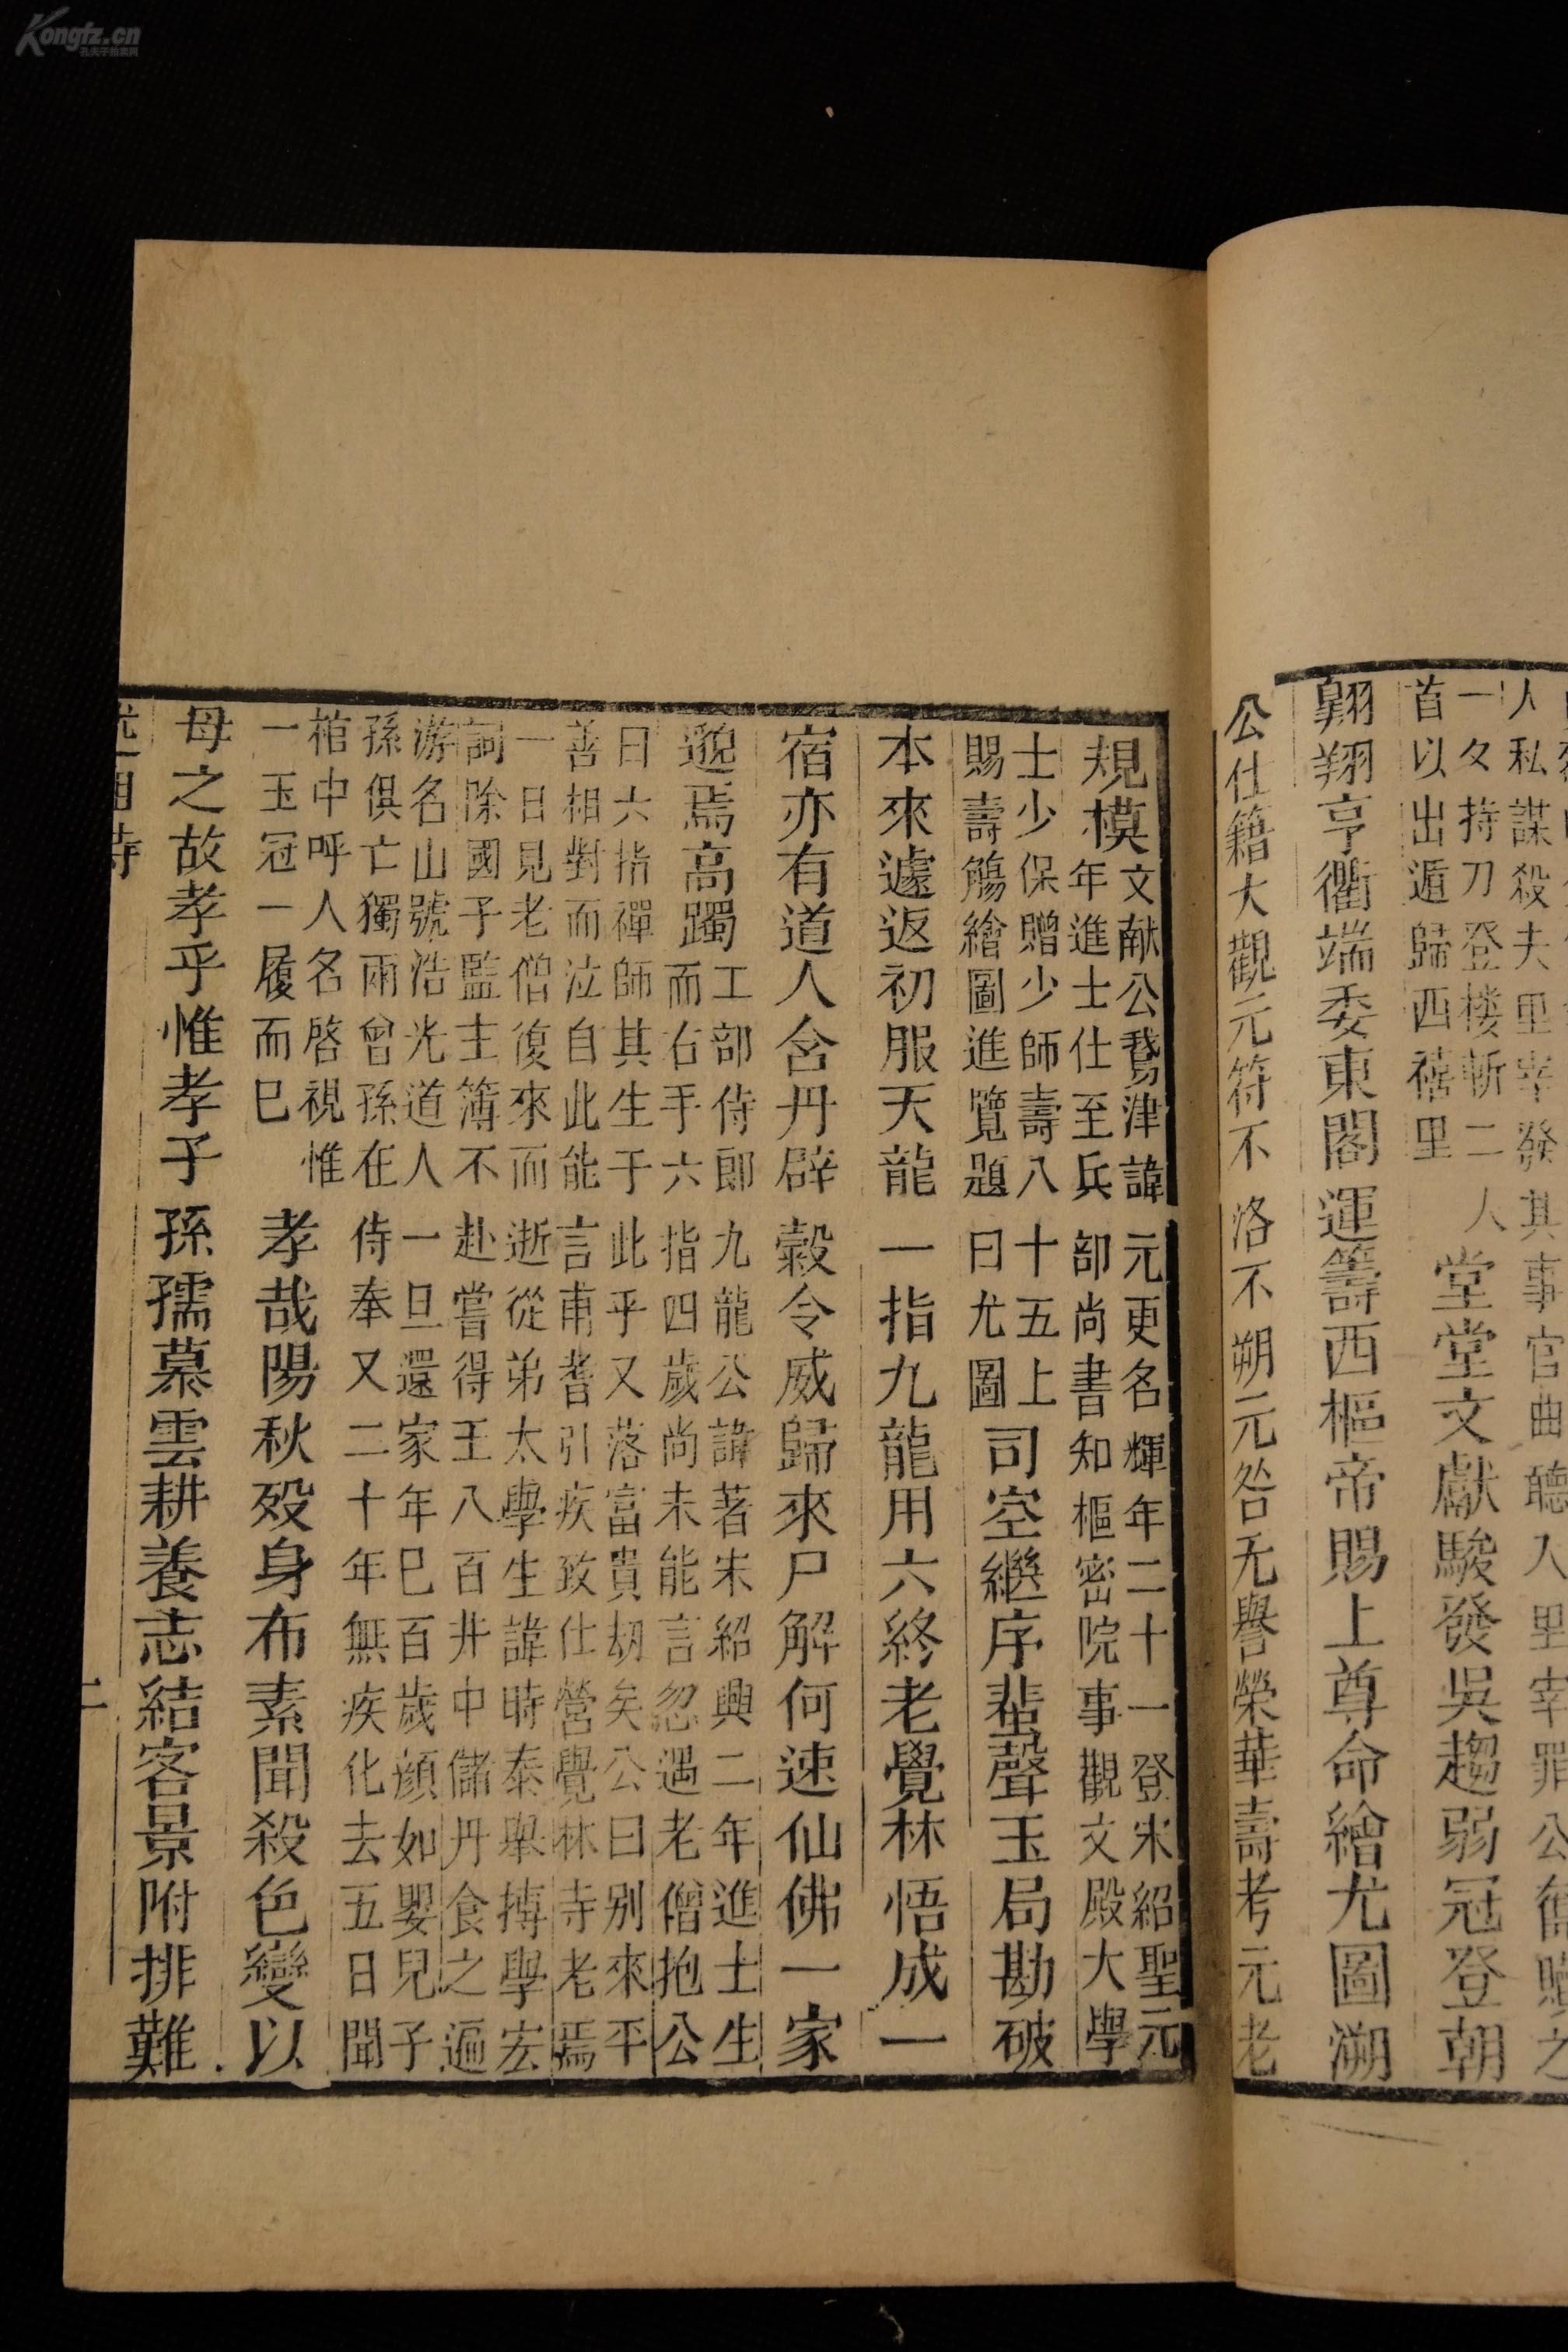 人私謀殺夫里宰發其事官曲聽入里宰罪公舊贖之
一夂持刀登楼斬二人
首以出遁歸西禧里
堂堂文獻駿發吳趨弱冠登朝
翺翔亨衢端委東閣運籌西樞帝賜上尊命繪尤圖溯
公仕籍大觀元符不洛不朔元咎无譽榮華壽考元老
規模
文献公鵞津諱元更名輝年二十一登宋紹聖元
年進士仕至兵部尚書知樞密院事觀文殿大學
士少保贈少師壽八十五上
賜壽觴繪圖進覽題曰尤圖
司空繼序蜚聲玉局勘破
本來遽返初服天龍一指九龍用六終老覺林悟成一
宿亦有道人含丹辟穀令威歸來尸解何速仙佛一家
邈焉高躅
工部侍郎九龍公諱著宋紹興二年進士生
而右手六指四歲尚未能言忽遇老僧抱公
曰六指禪師其生于此乎又落富貴劫矣公曰别來平
善相對而泣自此能言甫耆引疾致仕營覺林寺老焉
一日見老僧復來而逝從弟太學生諱時泰舉摶學宏
詞除國子監主簿不赴嘗得王八百井中儲丹食之遍
游名山號浩光道人一旦還家年巳百歲顔如嬰兒子
孫俱亡獨兩曾孫在侍奉又二十年無疾化去五日聞
棺中呼人名啓視惟
一玉冠一履而巳
孝哉陽秋殁身布素聞殺色變以
母之故孝乎惟孝子孫孺慕雲耕養志結客景附排難
Kongfz.cn